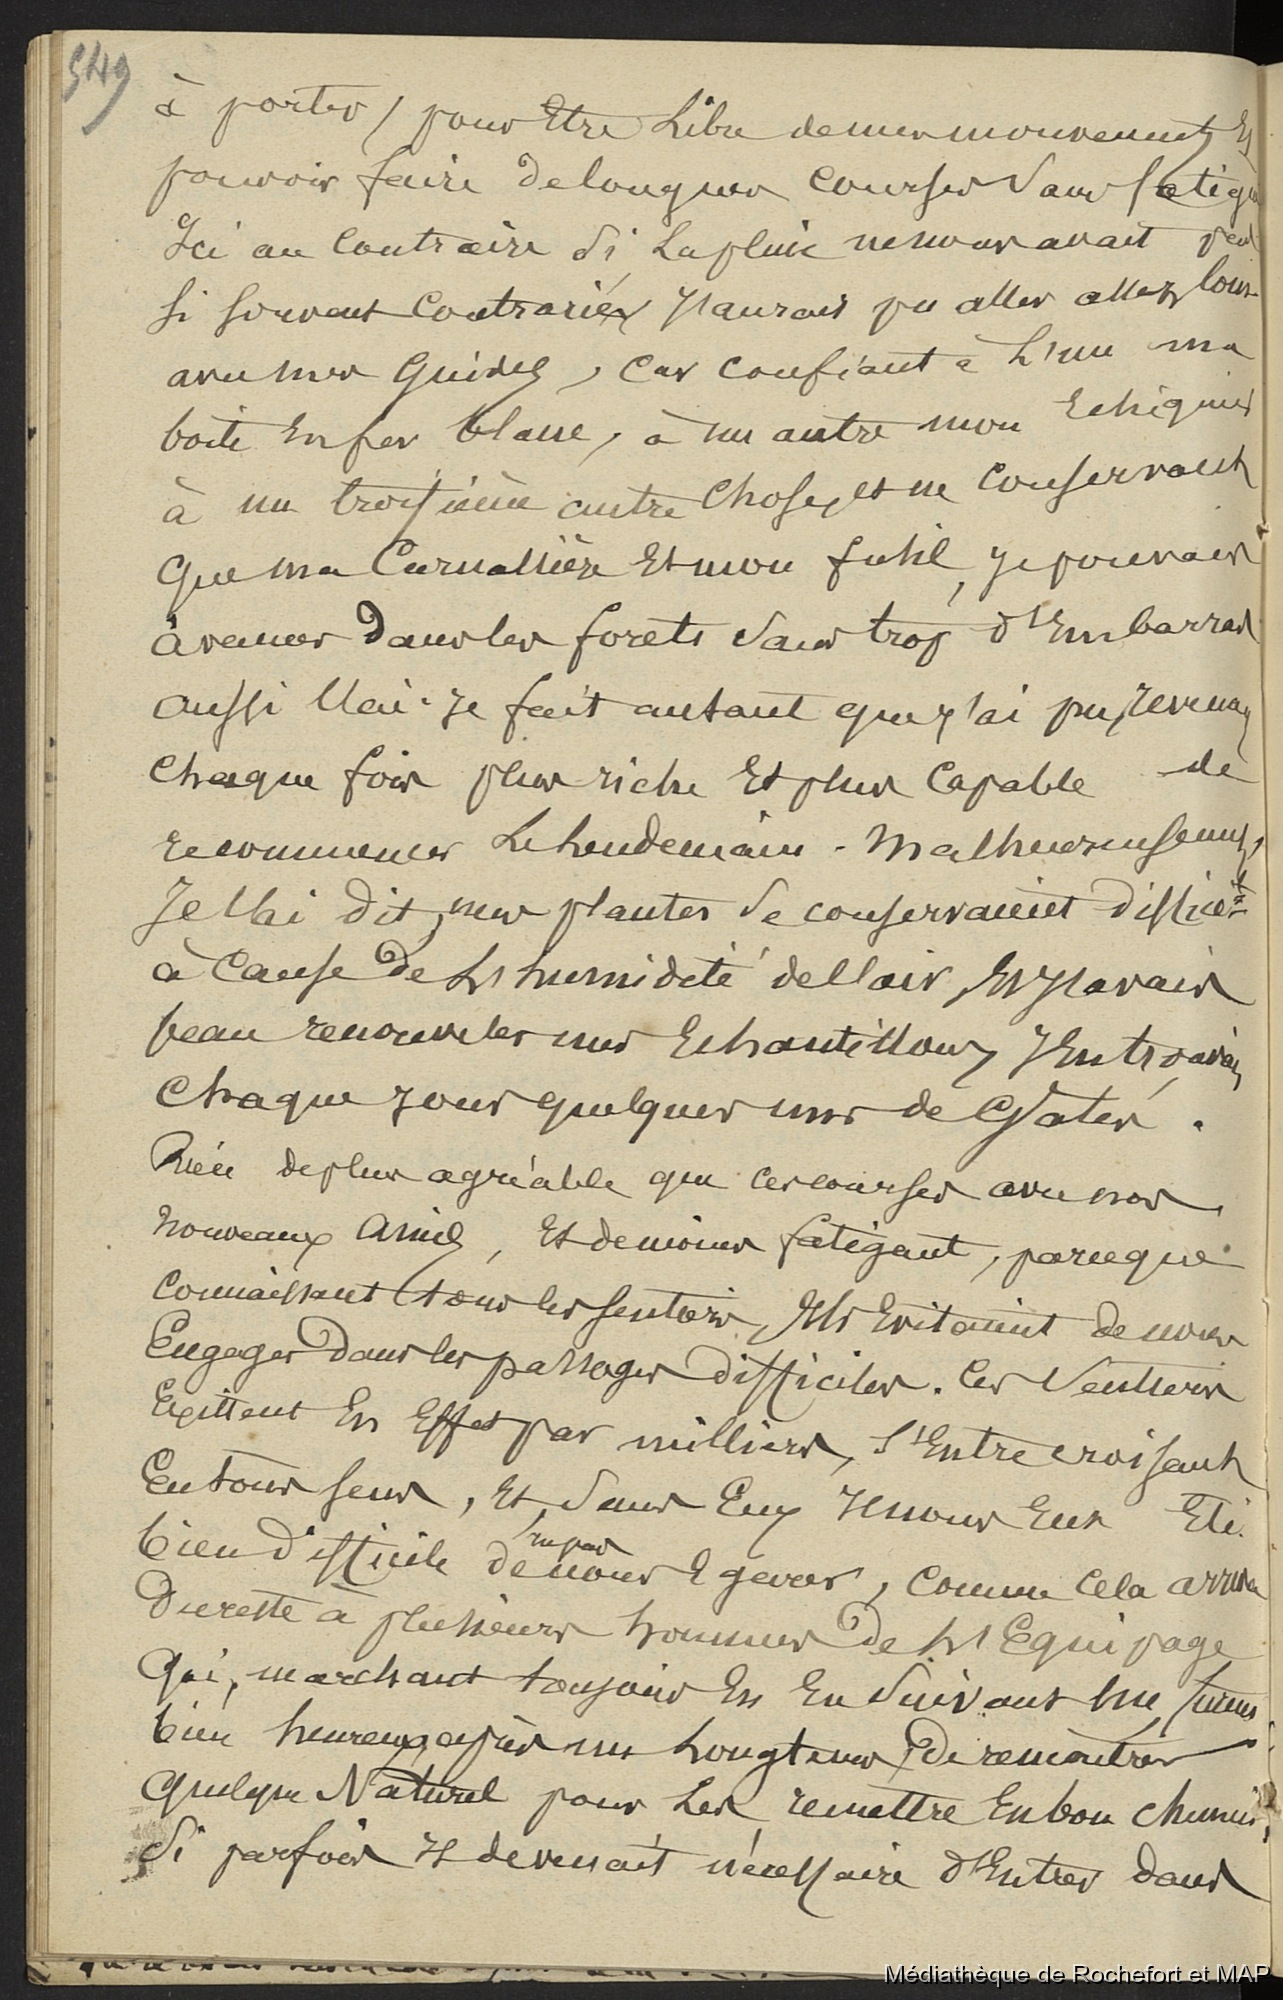 549
à porter / pour Etre Libre de mes mouvements Et
pouvoir faire de longues Courses Sans fatigue
Ici au Contraire Si La pluie ne nous avait pas
Si souvent Contrariés, J'aurais pu aller assez loin
avec mes Guides, Car Confiant à L'un ma
boite En fer blanc, à un autre mon Echiquier
à un troisième autre Chose, et ne Conservant
Que ma Carnassière Et mon fusil, je pouvais
avancer Dans les forets Sans trop d'Embarras
aussi l'ai-je fait autant que j'ai pu, revenant
Chaque fois plus riche Et plus Capable de
recommencer Le Lendemain. Malheureusement,
Je l'ai dit, mes plantes Se conservaient diffici.t
à Cause De L'humidité de l'air, Et J'avais
beau renouveler mes Echantillons, J'En trouvais
Chaque jour quelques uns de Gatés.
Rien de plus agréable que ces courses avec nos
nouveaux Amis, Et de moins fatigant, parceque
Connaissant tous les sentiers, Ils Evitaient de nous
Engager Dans les passages Difficiles. Ces Sentiers
Existent En Effet par milliers, S'Entrecroisant
En tous sens, Et, Sans Eux Il nous Eut Eté
bien Difficile de ne pas nous Egarer, Comme Cela arriva
Du reste à plusieurs hommes De L'Equipage
Qui, marchant toujours En En Suivant un, furent
bien heureux après un Longtemps, De rencontrer
Quelque Naturel pour Les remettre En bon chemin,
Si parfois Il devenait nécessaire d'Entrer dans
Médiathèque de Rochefort et MAP